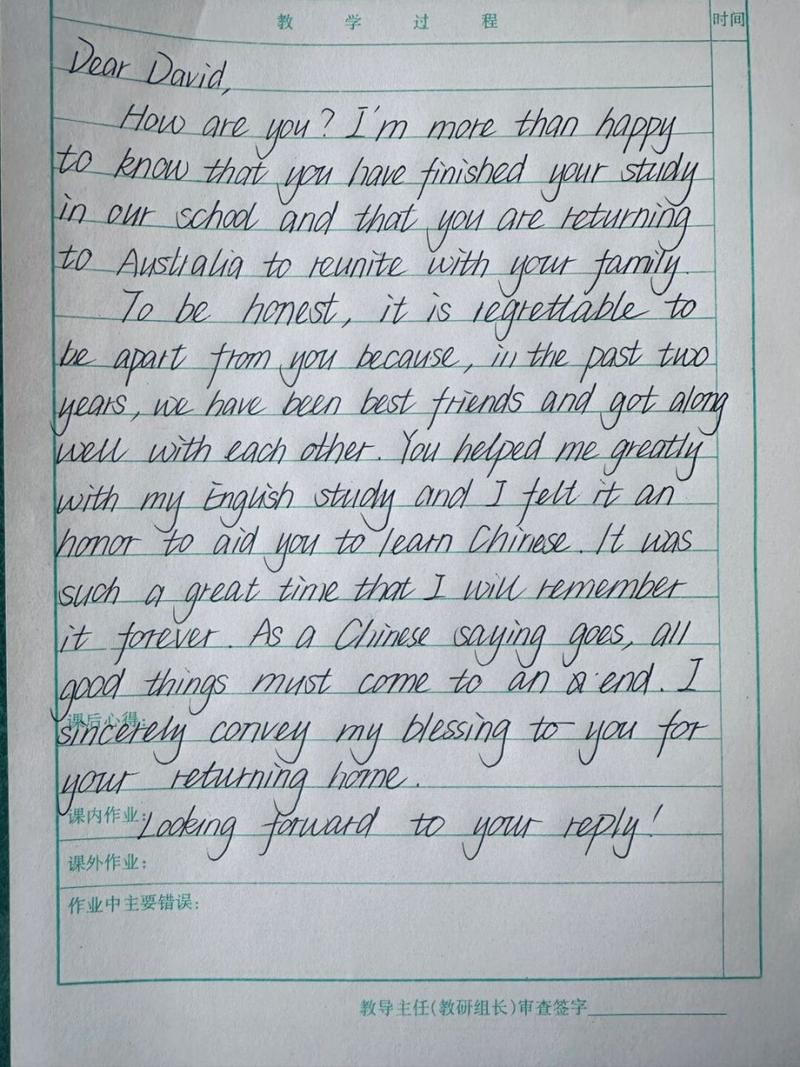 教 学 过 程 时间
Dear David,
How are you? I'm more than happy
to know that you have finished your study
in our school and that you are returning
to Australia to reunite with your family.
To be honest, it is regrettable to
be apart from you because, in the past two
years, we have been best friends and got along
well with each other. You helped me greatly
with my English study and I felt it an
honor to aid you to learn Chinese. It was
such a great time that I will remember
it forever. As a Chinese saying goes, all
good things must come to an end. I
课后心得:
sincerely convey my blessing to you for
your returning home.
课内作业:
Looking forward to your reply!
课外作业:
作业中主要错误:
教导主任(教研组长)审查签字